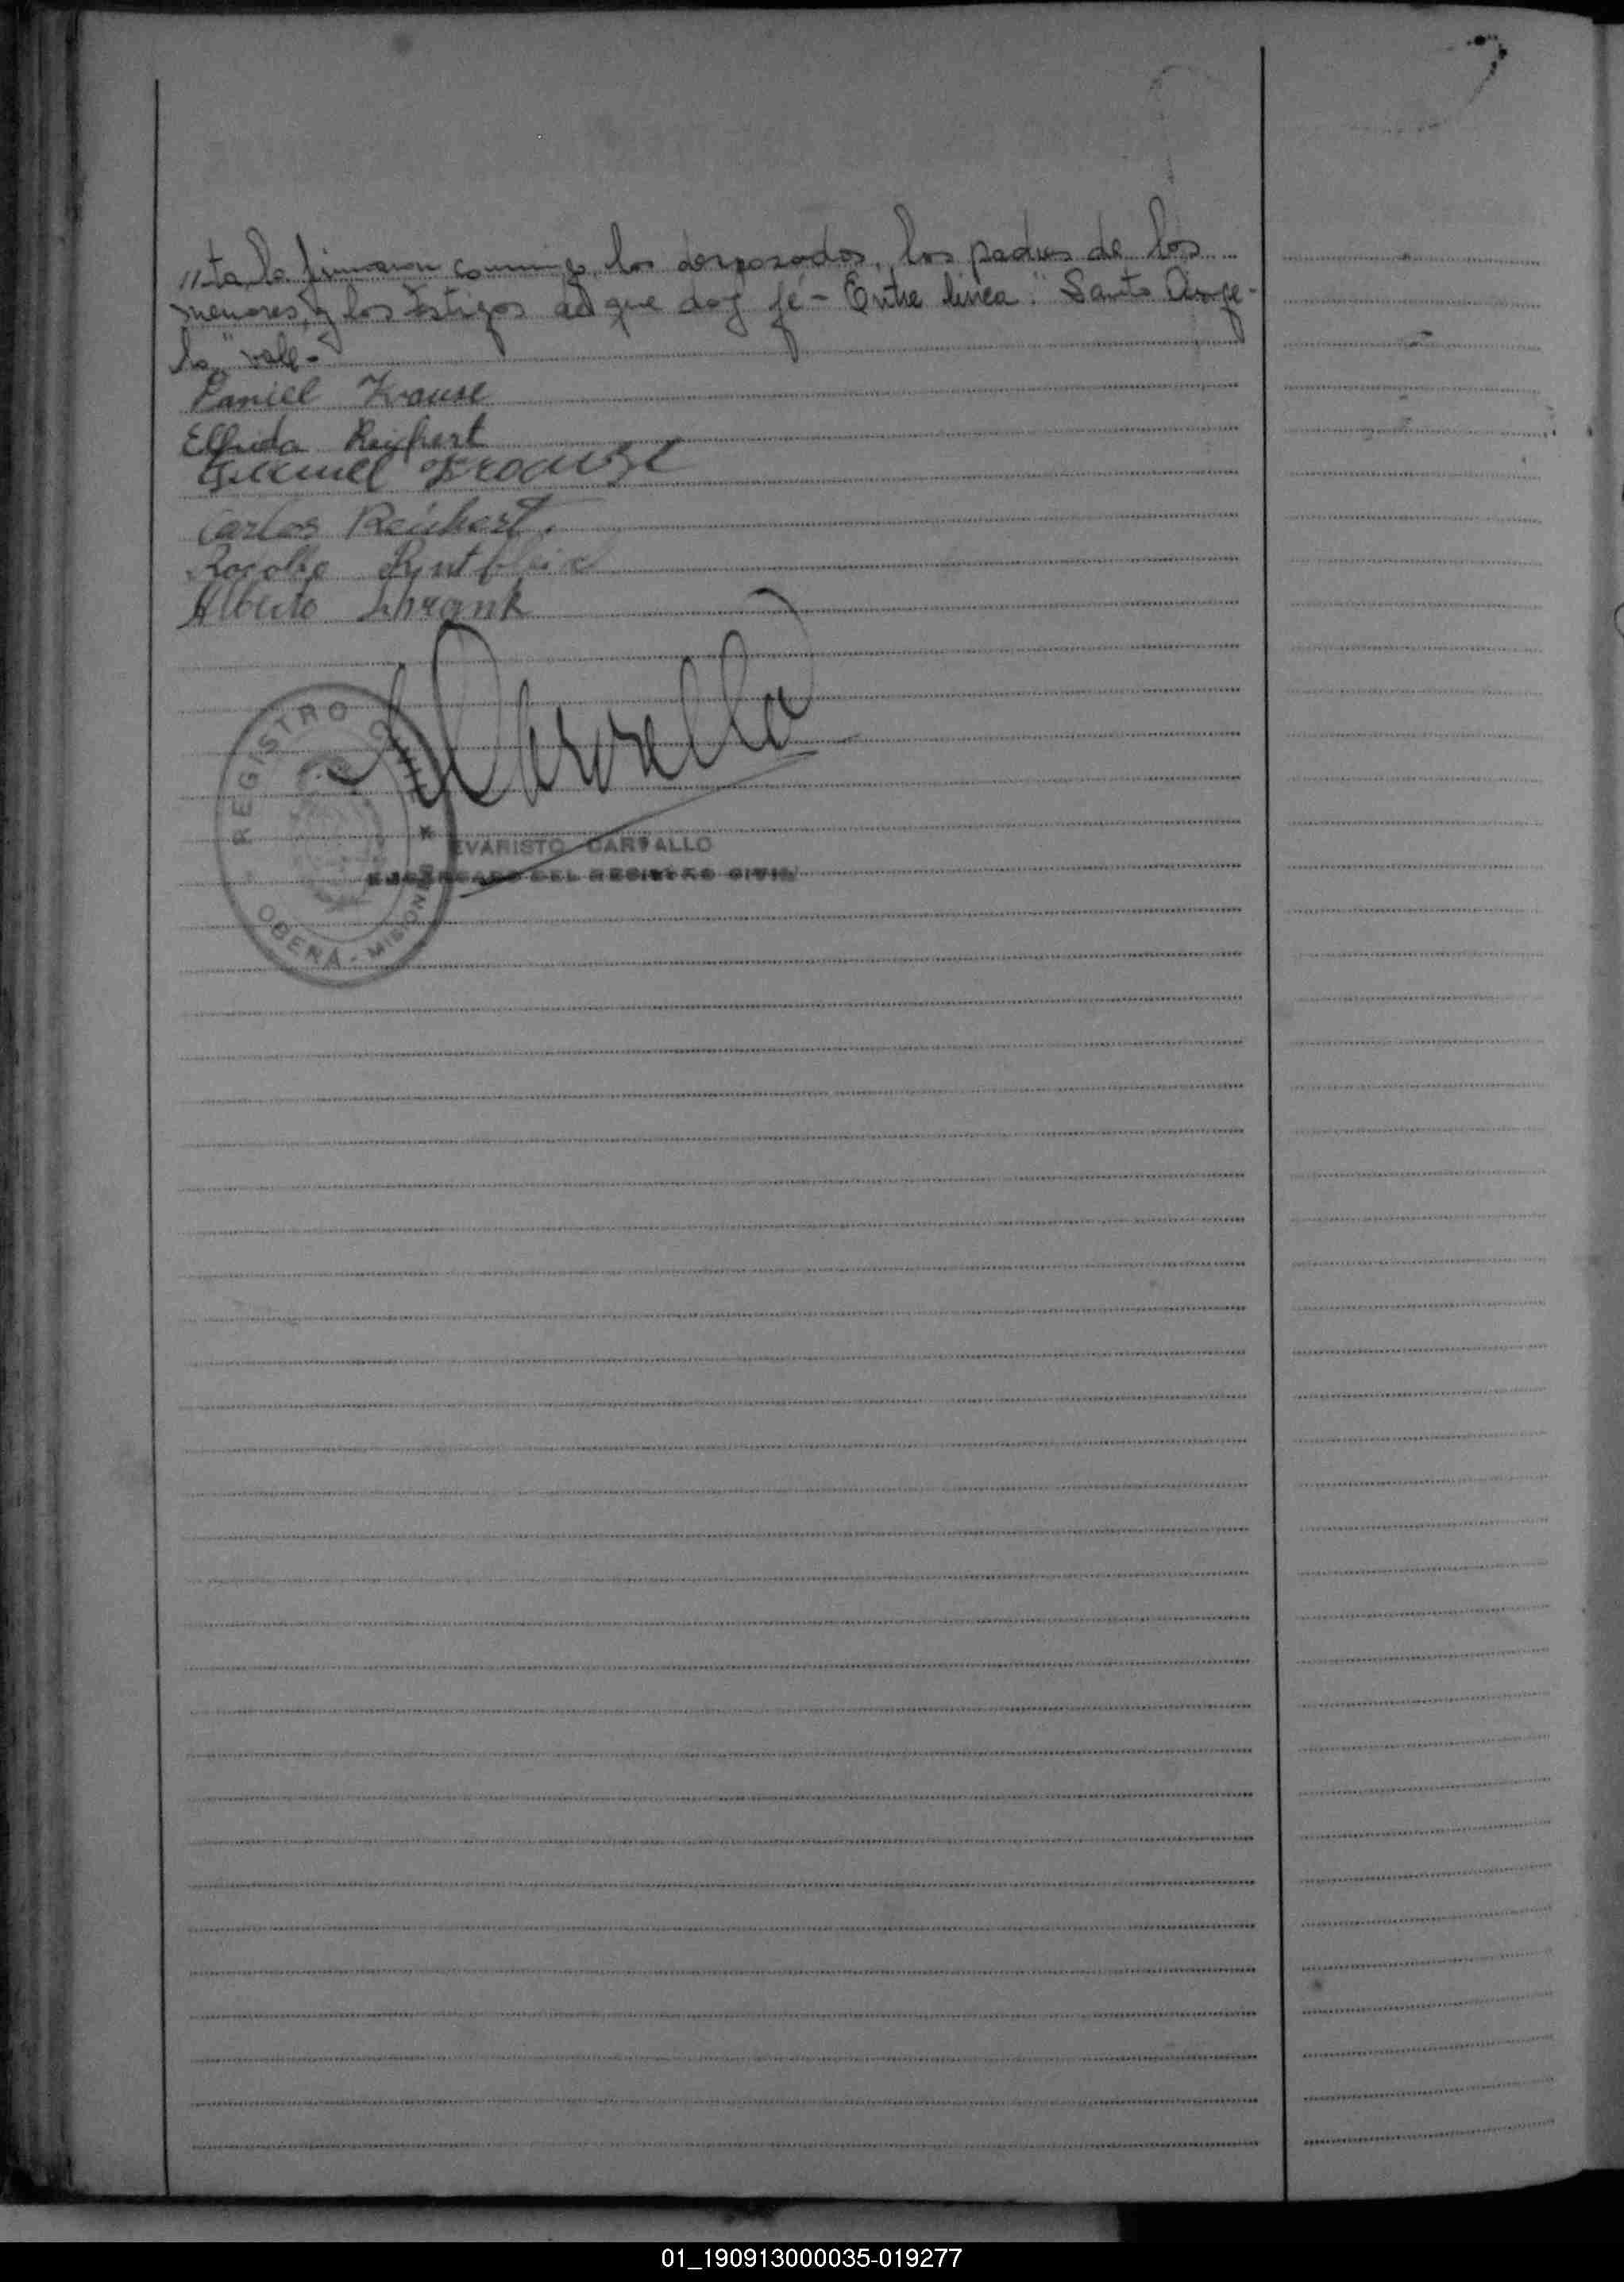 "ta, la firmaron conmigo, los desposados, los padres de los
menores, y los testigos de que doy fé - Entre linea: "Santo Ange-
lo" vale.-
Daniel Krause
Elfrida Reichert
Krause
Carlos Reichert.
Rodolfo
Alberto Schrank
Carvallo
REGISTRO CIVIL
OBERÁ - MISIONES
EVARISTO CARVALLO
ENCARGADO DEL REGISTRO CIVIL
01_190913000035-019277